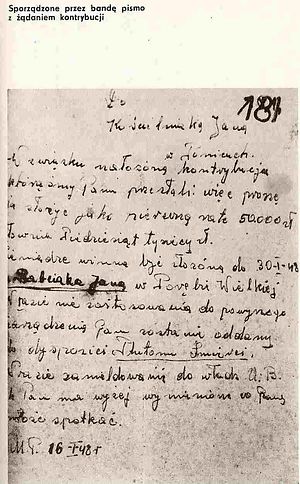 Sporządzone przez bandę pismo
z żądaniem kontrybucji
Do 187
Kościelniaka Jana
w
związku nałożoną kontrybucją
którą my Panu przesłali więc proszę
złożyć jako pierwszą ratę 50.000 zł
Piędziesiąt tysięcy zł.
winna być złożona do 30-I-48
Babiaka Jana w Porębie Wielkiej
razie nie zastosowania do powyszego
zarządzenia Pan zostanie oddany
do dyspozycji Plutonu Śmierci.
razie zameldowania do władz U.B.
Pan ma wyżej wymieniona
spotkać.
M.P. 16-I-48 r